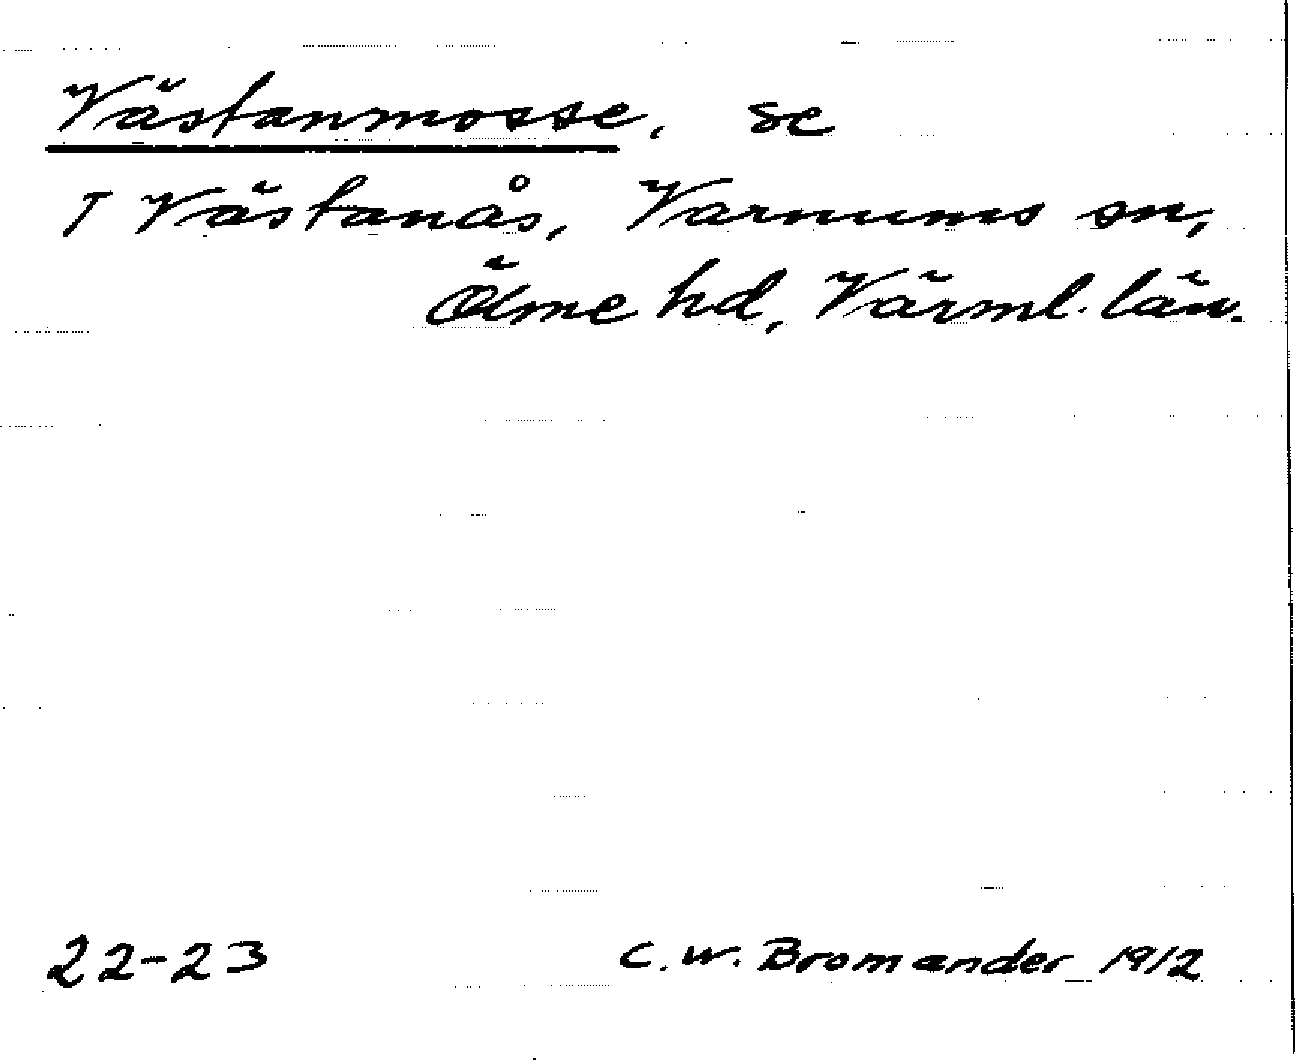 Västanmosse, se
T Västanås, Varnums sn,
Ölme hd, Värml. län.
22-23 C. W. Bromander 1912